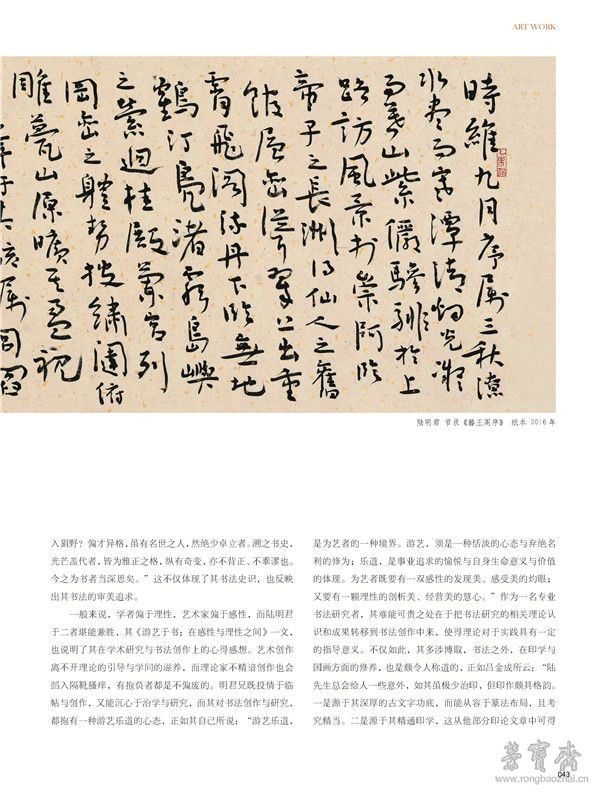 ART WORK
時維九月序属三秋潦
水尽而寒潭清烟光凝
而暮山紫儼驂騑於上
路訪風景於崇阿臨
帝子之長洲得仙人之舊
館層巒聳翠上出重
霄飛閣流丹下臨無地
鶴汀鳧渚窮島嶼
之縈迴桂殿蘭宮列
岡巒之體勢披繡闥俯
雕甍山原曠其盈視
陆明君 节录《滕王阁序》 纸本 2016年
入狷野？偏才异格，虽有名世之人，然绝少卓立者。溯之书史，
光芒盖代者，皆为雅正之格，纵有奇变，亦不背正、不乖谬也。
今之为书者当深思矣。”这不仅体现了其书法史识，也反映
出其书法的审美追求。
一般来说，学者偏于理性，艺术家偏于感性，而陆明君
于二者堪能兼胜，其《游艺于书：在感性与理性之间》一文，
也说明了其在学术研究与书法创作上的心得感想。艺术创作
离不开理论的引导与学问的滋养，而理论家不精谙创作也会
蹈入隔靴搔痒，有抱负者都是不偏废的。明君兄既投情于临
帖与创作，又能沉心于治学与研究，而其对书法创作与研究，
都抱有一种游艺乐道的心态，正如其自己所说：“游艺乐道，
是为艺者的一种境界。游艺，须是一种恬淡的心态与弃绝名
利的修为；乐道，是事业追求的愉悦与自身生命意义与价值
的体现。为艺者既要有一双感性的发现美、感受美的灼眼；
又要有一颗理性的剖析美、经营美的慧心。”作为一名专业
书法研究者，其难能可贵之处在于把书法研究的相关理论认
识和成果转移到书法创作中来，使得理论对于实践具有一定
的指导意义。不仅如此，其多涉博取，书法之外，在印学与
国画方面的修养，也是颇令人称道的，正如吕金成所云：“陆
先生总会给人一些意外，如其虽极少治印，但印作颇具格韵。
一是源于其深厚的古文字功底，而能从容于篆法布局，且考
究精当。二是源于其精通印学，这从他部分印论文章中可得
荣寶齋
www.rongbaozhai.cn
043